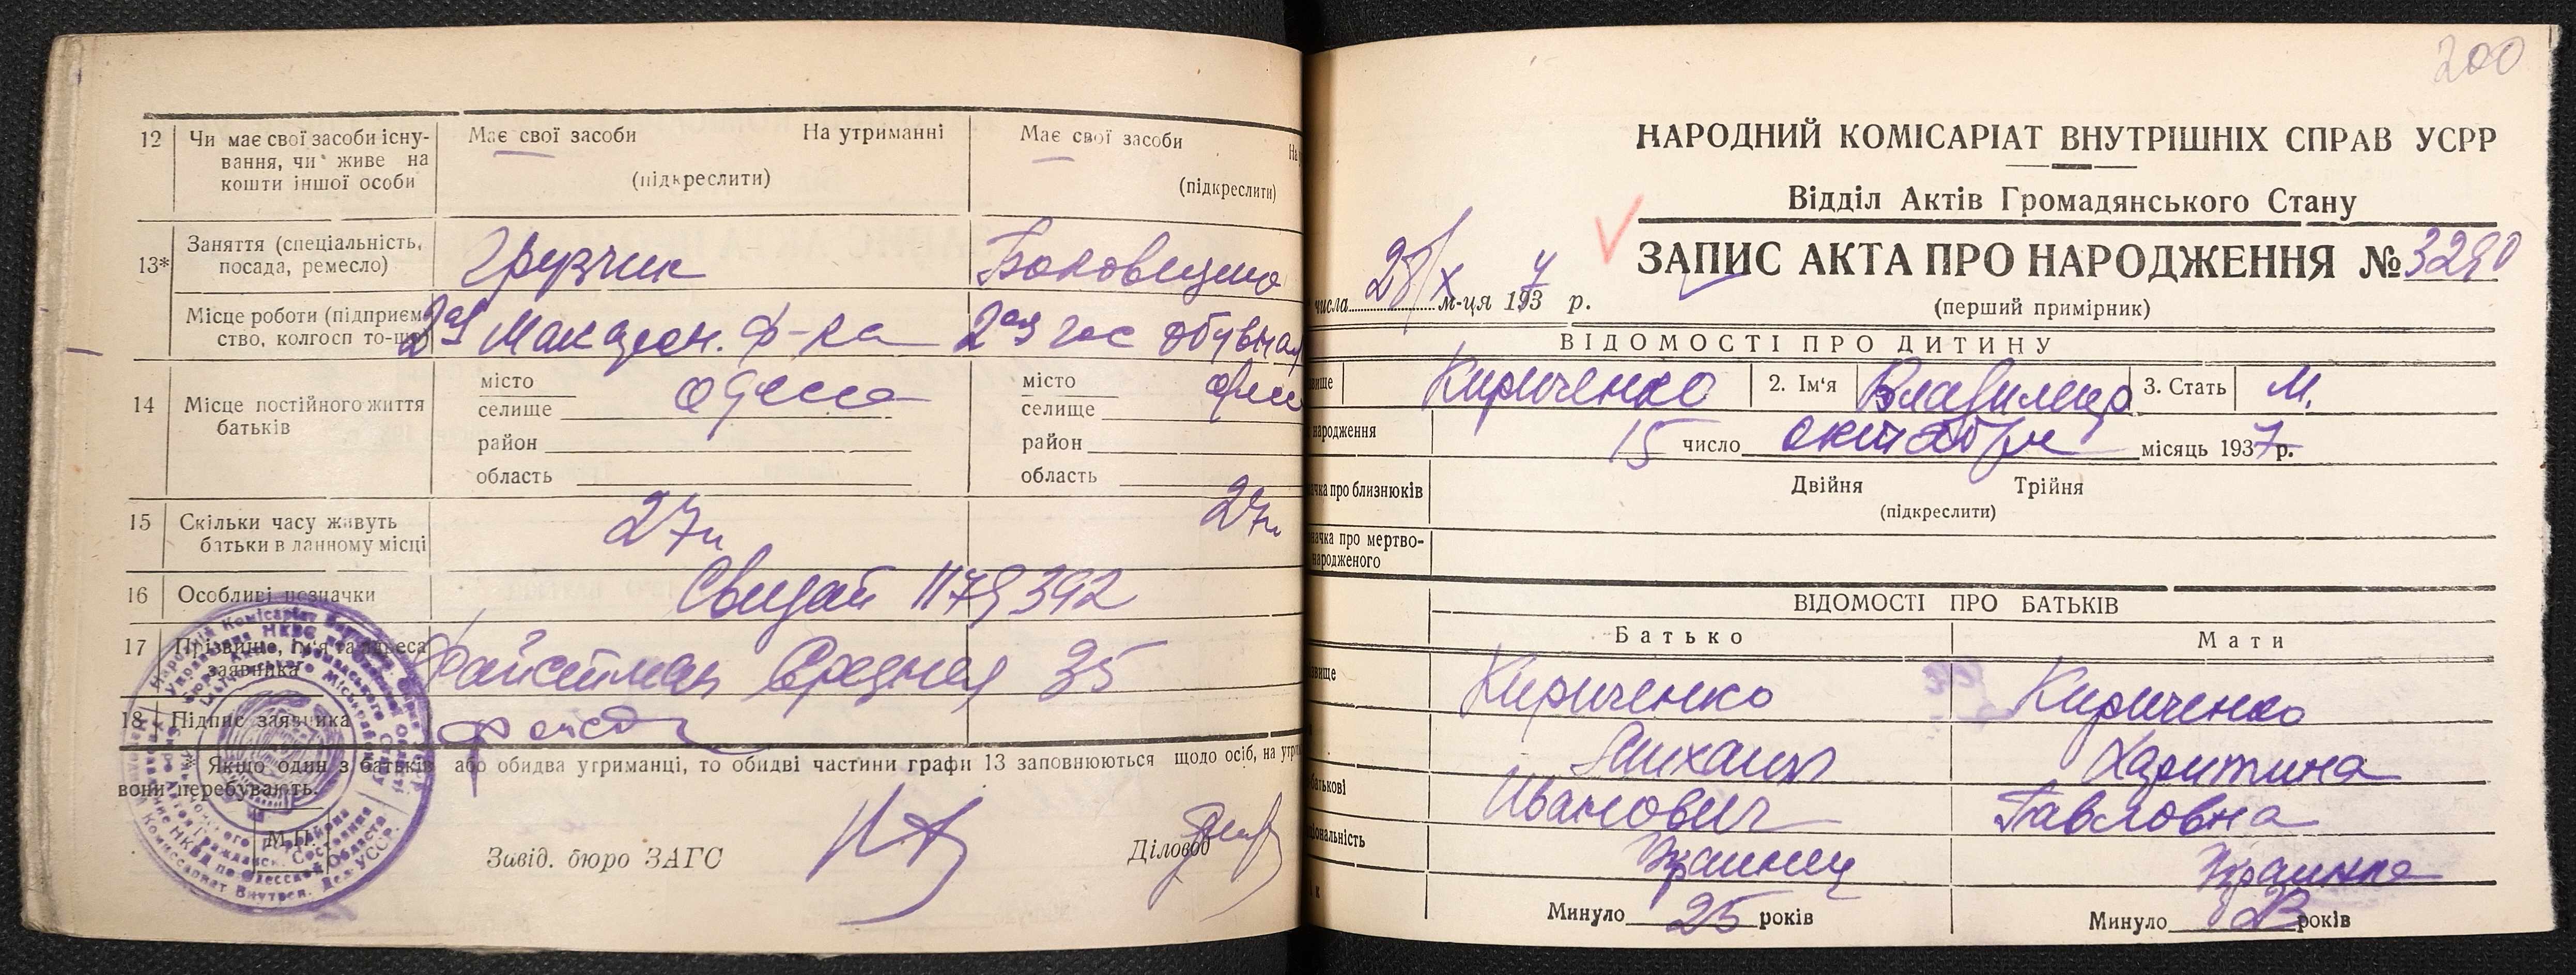 12 Чи має свої засоби існу-
вання, чи живе на
кошти іншої особи
Має свої засоби На утриманні
(підкреслити)
Має свої засоби
(підкреслити)
13* Заняття (спеціальність,
посада, ремесло)
Грузчик
Місце роботи (підприєм-
ство, колгосп то-що)
2ая Макарон. ф-ка
2ая гос обувная
14 Місце постійного життя
батьків
місто Одесса
селище
район
область
місто
селище
район
область
15 Скільки часу живуть
батьки в данному місці
27
16 Особливі позначки
1179392
17 Прізвище, ім'я та адреса
заявника
Средняя 35
18 Підпис заявника
* Якщо один з батьків або обидва утриманці, то обидві частини графи 13 заповнюються щодо осіб, на
вони перебувають.
М.П.
Завід. бюро ЗАГС
Діловод
200
НАРОДНИЙ КОМІСАРІАТ ВНУТРІШНІХ СПРАВ УСРР
Відділ Актів Громадянського Стану
ЗАПИС АКТА ПРО НАРОДЖЕННЯ № 3290
числа 28/X м-ця 1937 р.
(перший примірник)
ВІДОМОСТІ ПРО ДИТИНУ
Кириченко 2. Ім'я Владимир 3. Стать М.
народження 15 число октября місяць 1937 р.
про близнюків
Двійня Трійня
(підкреслити)
про мертво-
народженого
ВІДОМОСТІ ПРО БАТЬКІВ
Батько Мати
Кириченко Кириченко
Михаил Харитина
Иванович Павловна
Украинец Украинка
Минуло 25 років Минуло 23 років